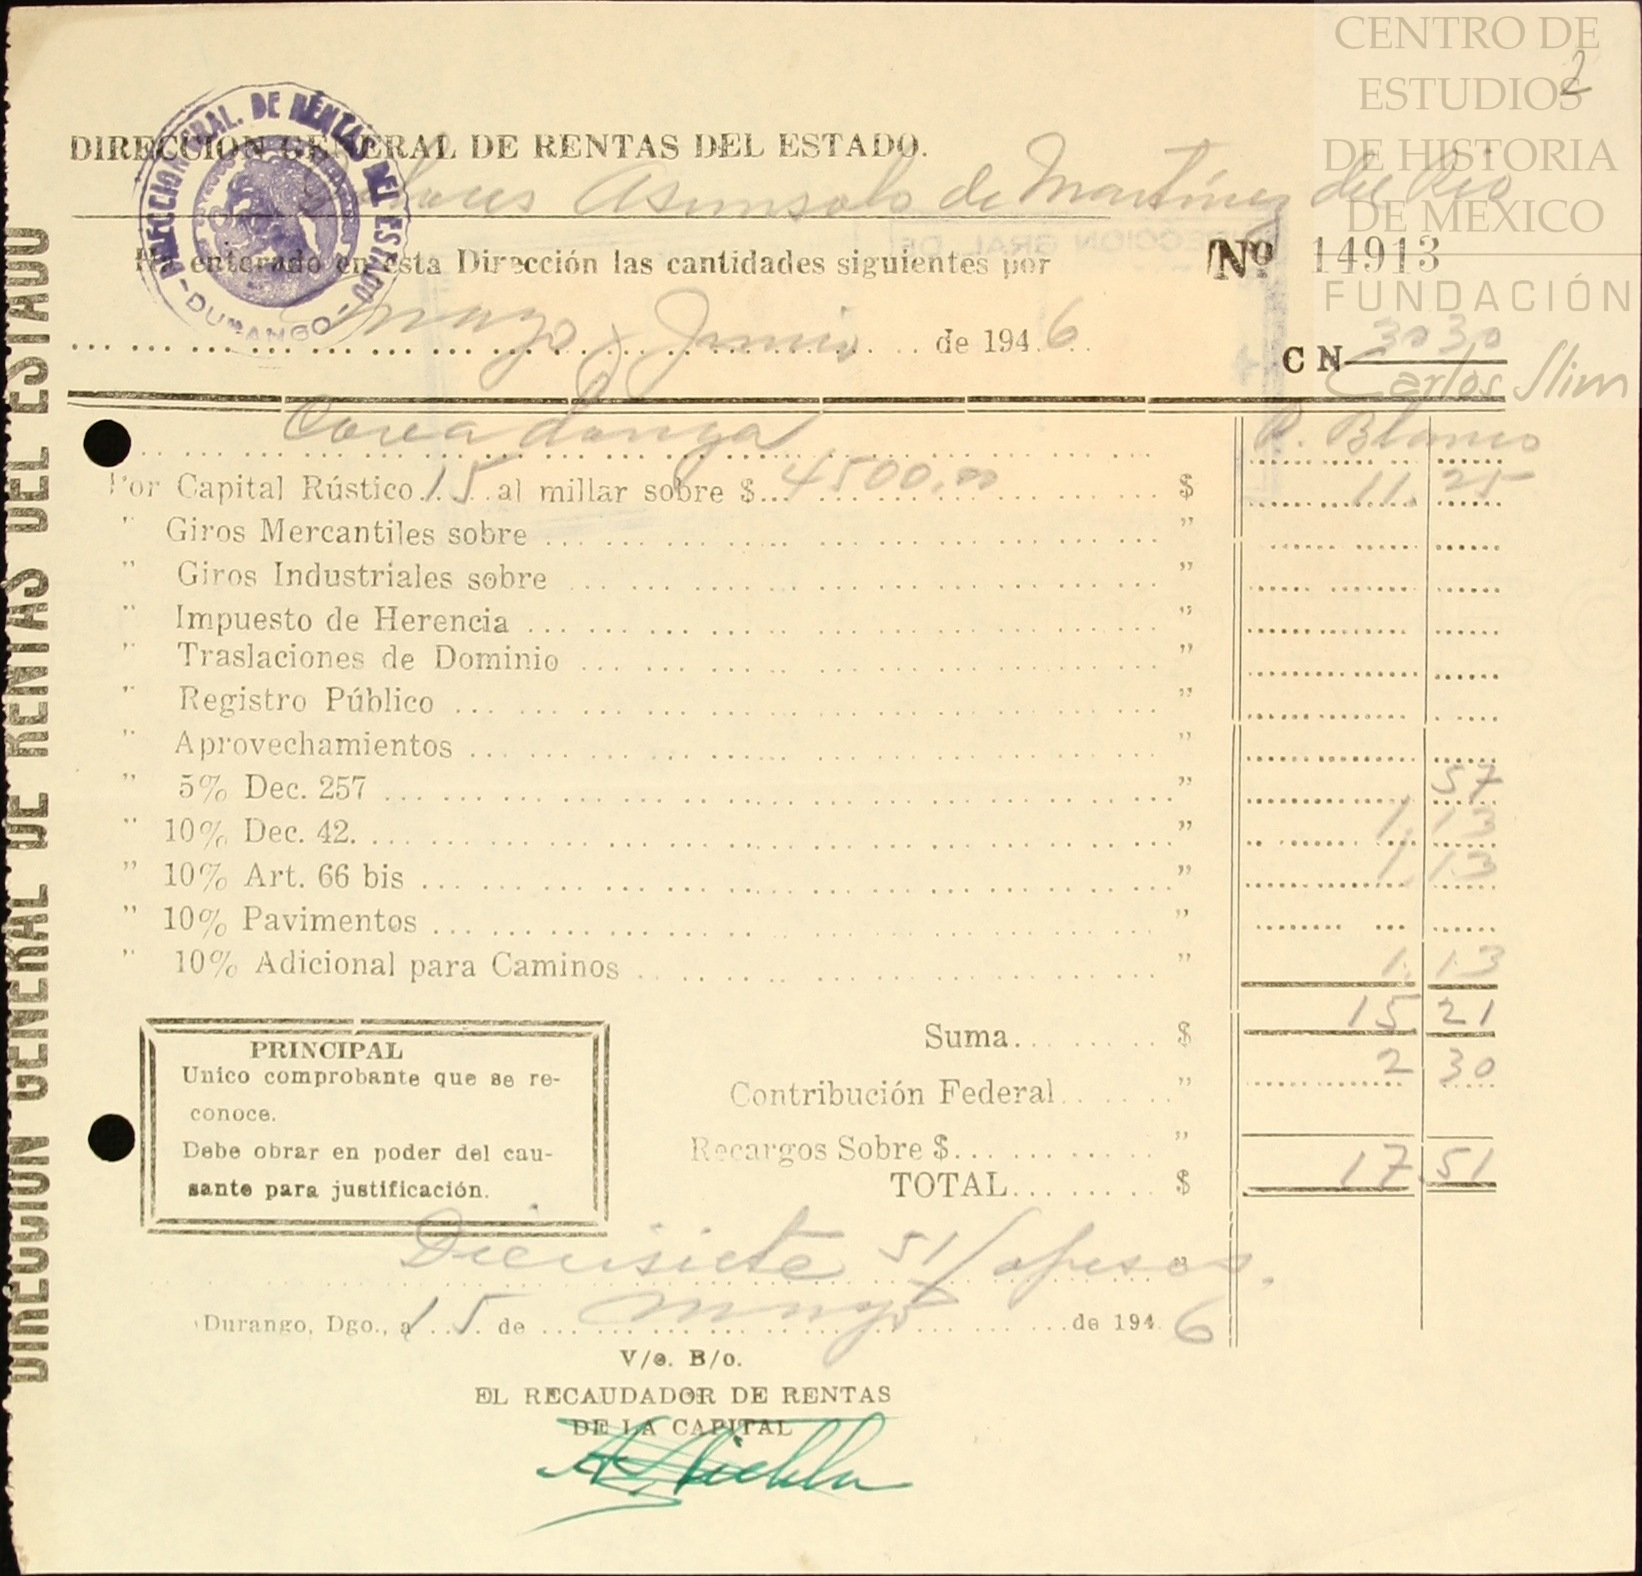 CENTRO DE
ESTUDIOS
DE HISTORIA
DE MEXICO
FUNDACIÓN
Carlos Slim
2
DIRECCION GRAL. DE RENTAS DEL ESTADO
-DURANGO-
DIRECCION GENERAL DE RENTAS DEL ESTADO.
Dolores Asunsolo de Martínez del Rio
Ha enterado en esta Dirección las cantidades siguientes por
Nº 14913
mayo y Junio de 1946
C N 3030
Covadonga P. Blanco
Por Capital Rústico 15 al millar sobre $ 4500.00 $ 11.25
" Giros Mercantiles sobre "
" Giros Industriales sobre "
" Impuesto de Herencia "
" Traslaciones de Dominio "
" Registro Público "
" Aprovechamientos "
" 5% Dec. 257 " 57
" 10% Dec. 42. " 1.13
" 10% Art. 66 bis " 1.13
" 10% Pavimentos "
" 10% Adicional para Caminos " 1.13
Suma $ 15 21
Contribución Federal " 2 30
Recargos Sobre $ "
TOTAL $ 17.51
PRINCIPAL
Unico comprobante que se re-
conoce.
Debe obrar en poder del cau-
sante para justificación.
Diecisiete 51/ pesos.
Durango, Dgo., a 15 de mayo de 1946
V/o. B/o.
EL RECAUDADOR DE RENTAS
DE LA CAPITAL
DIRECCION GENERAL DE RENTAS DEL ESTADO